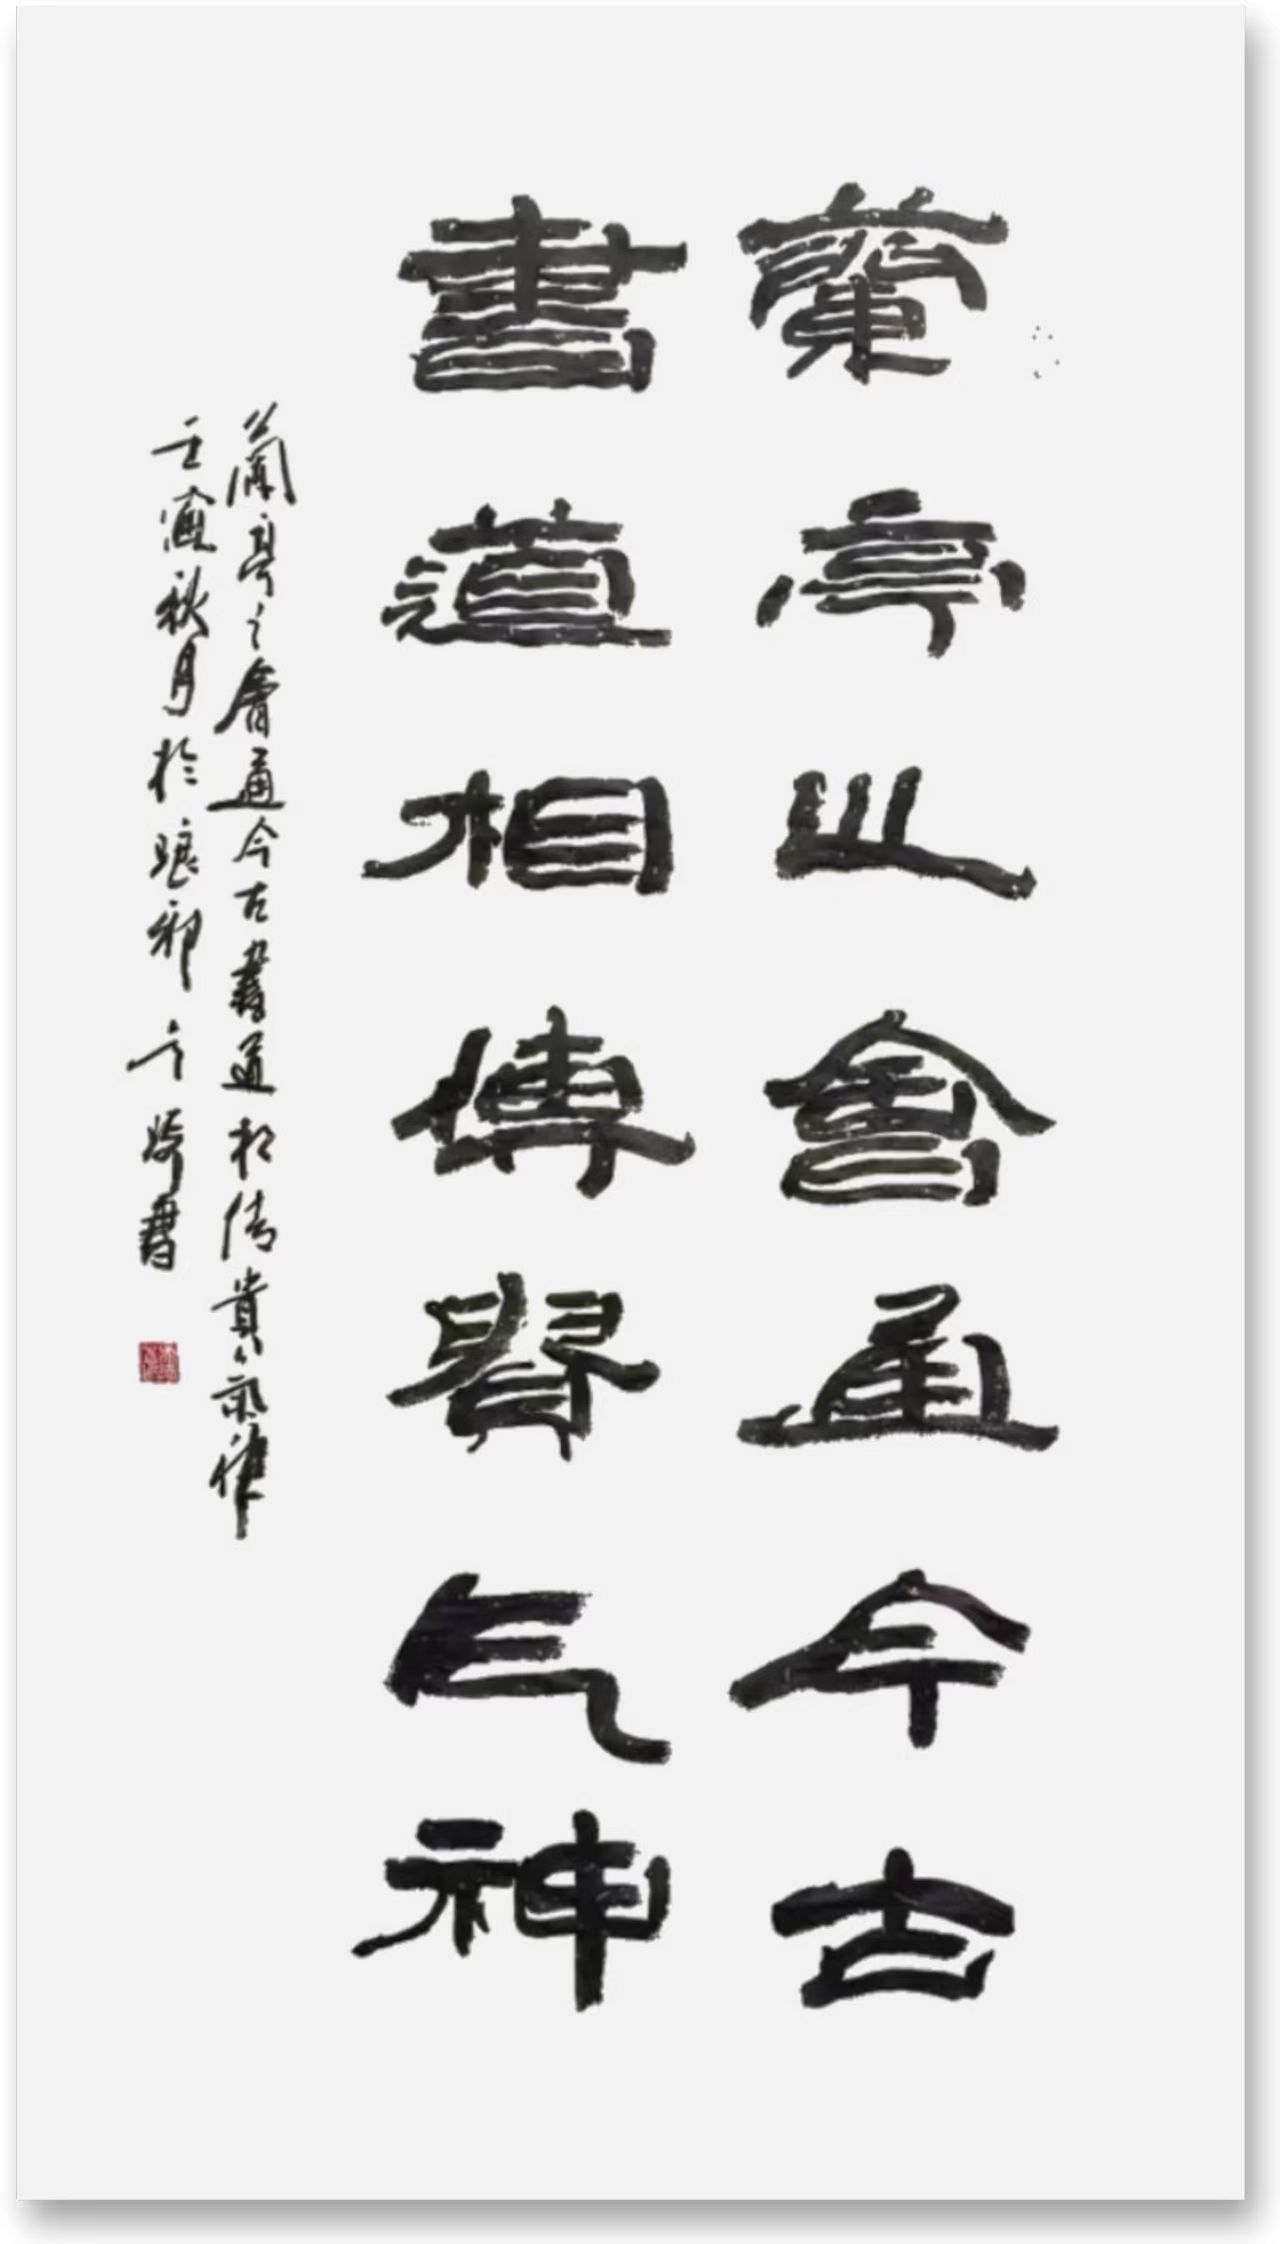 蘭亭之會通今古
書道相傳貴气神
蘭亭之會通今古書道相傳貴氣神
壬寅秋月於琅琊書